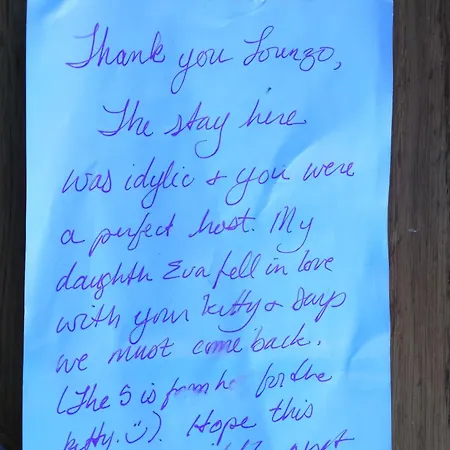 Thank you Lorenzo,
The stay here
was idylic & you were
a perfect host. My
daughtr Eva fell in love
with your kitty & says
we must come back.
(The 5 is from he for the
kitty. :)). Hope this